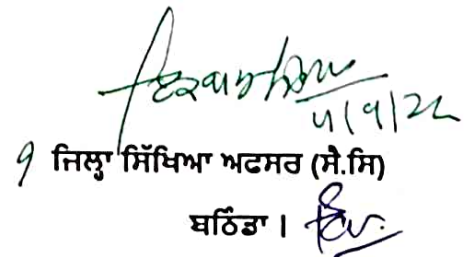 5/9/22
ਜਿਲ੍ਹਾ ਸਿੱਖਿਆ ਅਫਸਰ (ਸੈ.ਸਿ)
ਬਠਿੰਡਾ ।